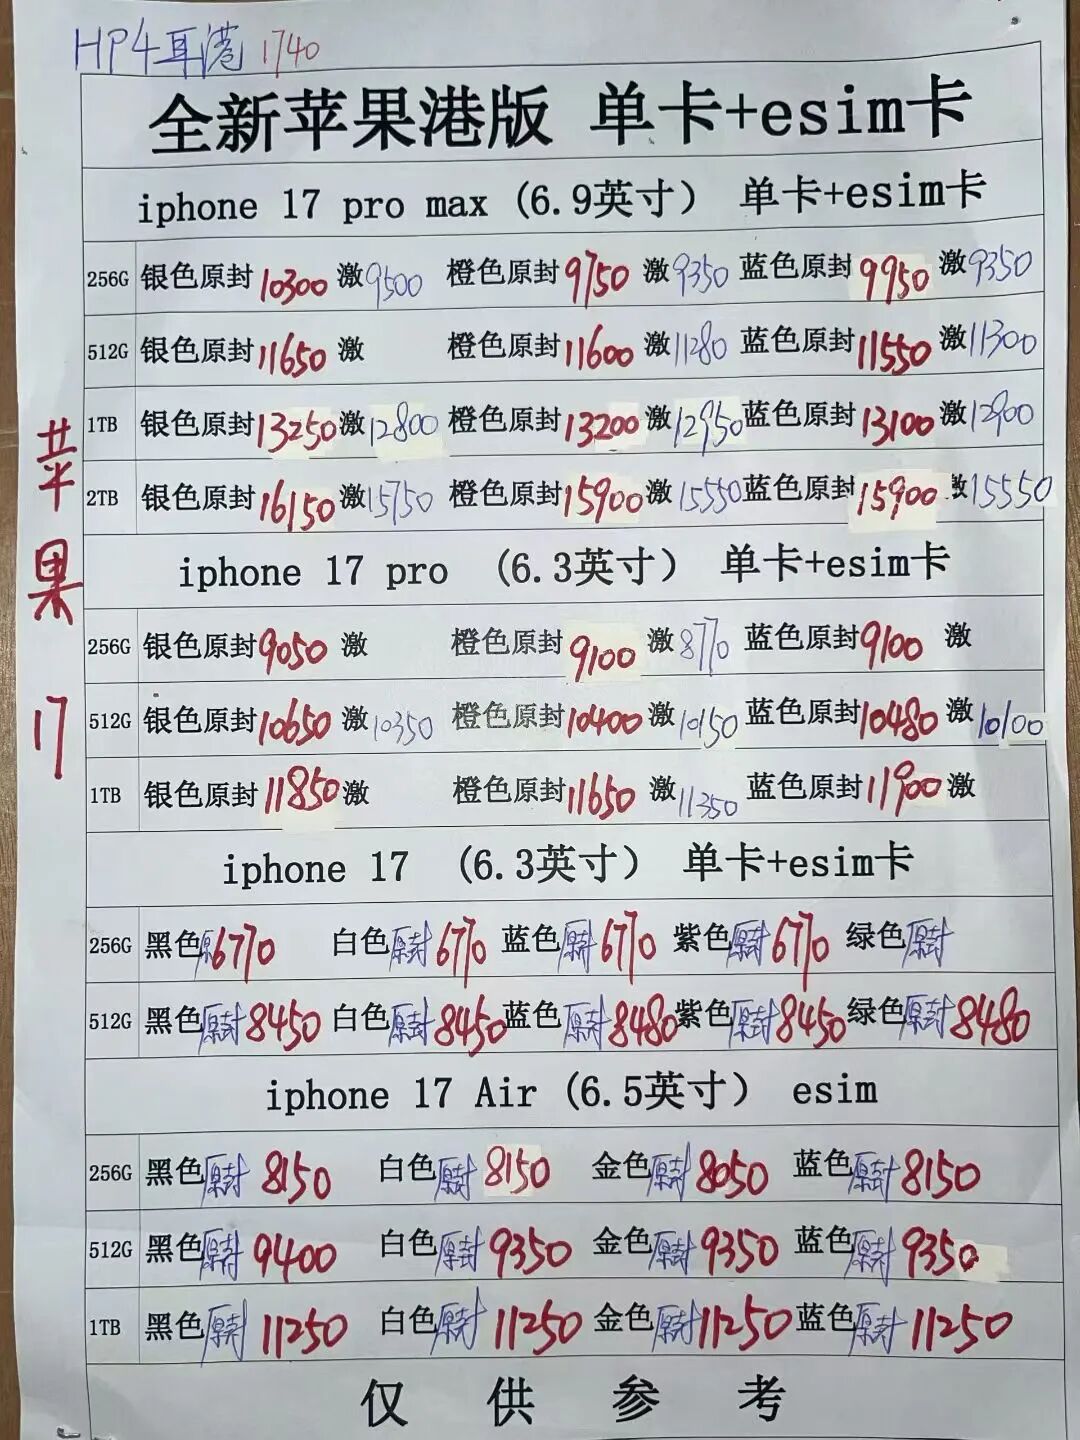 HP4耳港 1740
全新苹果港版 单卡+esim卡
iphone 17 pro max (6.9英寸) 单卡+esim卡
256G 银色原封10300 激9500 橙色原封9750 激9350 蓝色原封9950 激9350
512G 银色原封11650 激 橙色原封11600 激11280 蓝色原封11550 激11300
1TB 银色原封13250 激12800 橙色原封13200 激12950 蓝色原封13100 激12900
2TB 银色原封16150 激15750 橙色原封15900 激15550 蓝色原封15900 激15550
iphone 17 pro (6.3英寸) 单卡+esim卡
256G 银色原封9050 激 橙色原封9100 激8770 蓝色原封9100 激
512G 银色原封10650 激10350 橙色原封10400 激10150 蓝色原封10480 激10100
1TB 银色原封11850 激 橙色原封11650 激11350 蓝色原封11900 激
iphone 17 (6.3英寸) 单卡+esim卡
256G 黑色原6770 白色原封6770 蓝色原封6770 紫色原封6770 绿色原封
512G 黑色原封8450 白色原封8450 蓝色原封8480 紫色原封8450 绿色原封8480
iphone 17 Air (6.5英寸) esim
256G 黑色原封8150 白色原封8150 金色原封8050 蓝色原封8150
512G 黑色原封9400 白色原封9350 金色原封9350 蓝色原封9350
1TB 黑色原封11250 白色原封11250 金色原封11250 蓝色原封11250
仅供参考
苹果17